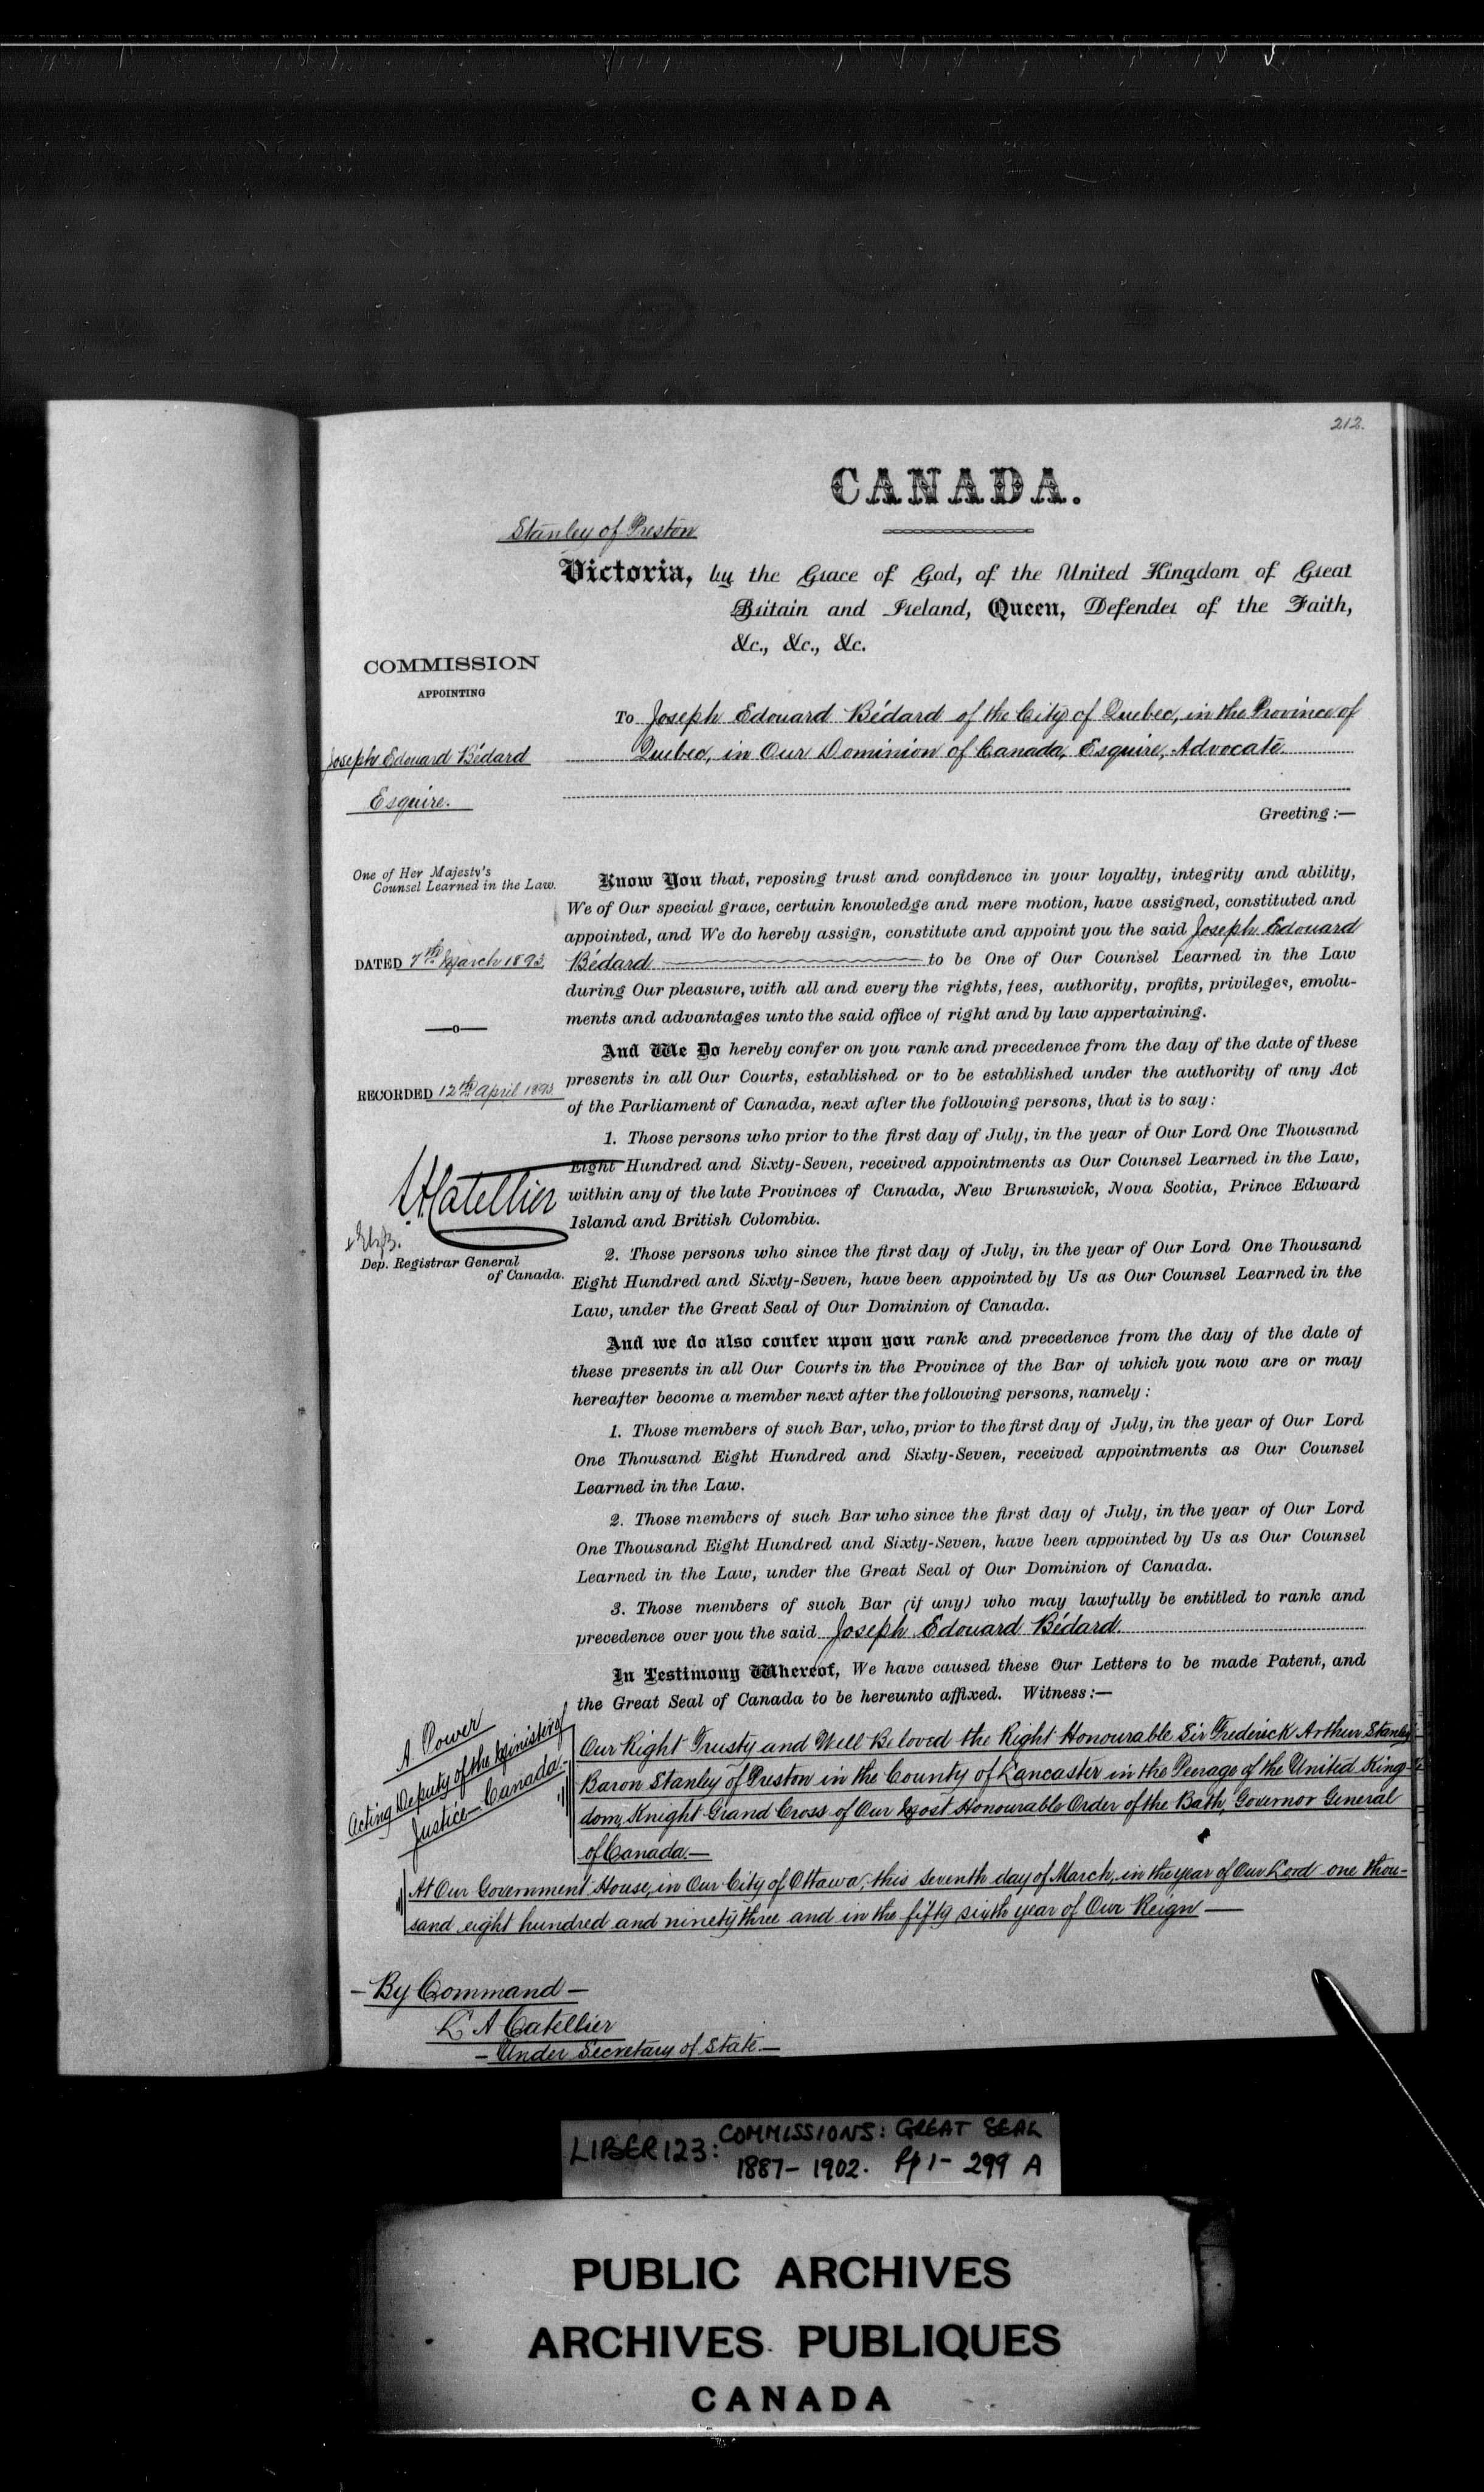 212.
CANADA.
Stanley of Preston
Victoria, by the Grace of God, of the United Kingdom of Great
Britain and Ireland, Queen, Defender of the Faith,
&c., &c., &c.
COMMISSION
APPOINTING
Joseph Edouard Bédard
Esquire.
To Joseph Edouard Bédard of the City of Quebec, in the Province of
Quebec, in Our Dominion of Canada, Esquire, Advocate
Greeting:—
One of Her Majesty's
Counsel Learned in the Law.
DATED 7th March 1893
RECORDED 12th April 1893
L A Catellier
Dep. Registrar General
of Canada.
Know You that, reposing trust and confidence in your loyalty, integrity and ability,
We of Our special grace, certain knowledge and mere motion, have assigned, constituted and
appointed, and We do hereby assign, constitute and appoint you the said Joseph Edouard
Bédard to be One of Our Counsel Learned in the Law
during Our pleasure, with all and every the rights, fees, authority, profits, privileges, emolu-
ments and advantages unto the said office of right and by law appertaining.
And We Do hereby confer on you rank and precedence from the day of the date of these
presents in all Our Courts, established or to be established under the authority of any Act
of the Parliament of Canada, next after the following persons, that is to say:
1. Those persons who prior to the first day of July, in the year of Our Lord One Thousand
Eight Hundred and Sixty-Seven, received appointments as Our Counsel Learned in the Law,
within any of the late Provinces of Canada, New Brunswick, Nova Scotia, Prince Edward
Island and British Colombia.
2. Those persons who since the first day of July, in the year of Our Lord One Thousand
Eight Hundred and Sixty-Seven, have been appointed by Us as Our Counsel Learned in the
Law, under the Great Seal of Our Dominion of Canada.
And we do also confer upon you rank and precedence from the day of the date of
these presents in all Our Courts in the Province of the Bar of which you now are or may
hereafter become a member next after the following persons, namely:
1. Those members of such Bar, who, prior to the first day of July, in the year of Our Lord
One Thousand Eight Hundred and Sixty-Seven, received appointments as Our Counsel
Learned in the Law.
2. Those members of such Bar who since the first day of July, in the year of Our Lord
One Thousand Eight Hundred and Sixty-Seven, have been appointed by Us as Our Counsel
Learned in the Law, under the Great Seal of Our Dominion of Canada.
3. Those members of such Bar (if any) who may lawfully be entitled to rank and
precedence over you the said Joseph Edouard Bédard.
In Testimony Whereof, We have caused these Our Letters to be made Patent, and
the Great Seal of Canada to be hereunto affixed. Witness:—
A Power
Acting Deputy of the Minister of
Justice—Canada—
Our Right Trusty and Well Beloved the Right Honourable Sir Frederick Arthur Stanley
Baron Stanley of Preston in the County of Lancaster in the Peerage of the United King-
dom, Knight Grand Cross of Our Most Honourable Order of the Bath, Governor General
of Canada.—
At Our Government House, in Our City of Ottawa, this seventh day of March, in the year of Our Lord one thou-
sand eight hundred and ninety three and in the fifty sixth year of Our Reign —
— By Command —
L A Catellier
— Under Secretary of State —
LIBER 123: COMMISSIONS: GREAT SEAL
1887 - 1902. Pp 1 - 299 A
PUBLIC ARCHIVES
ARCHIVES PUBLIQUES
CANADA